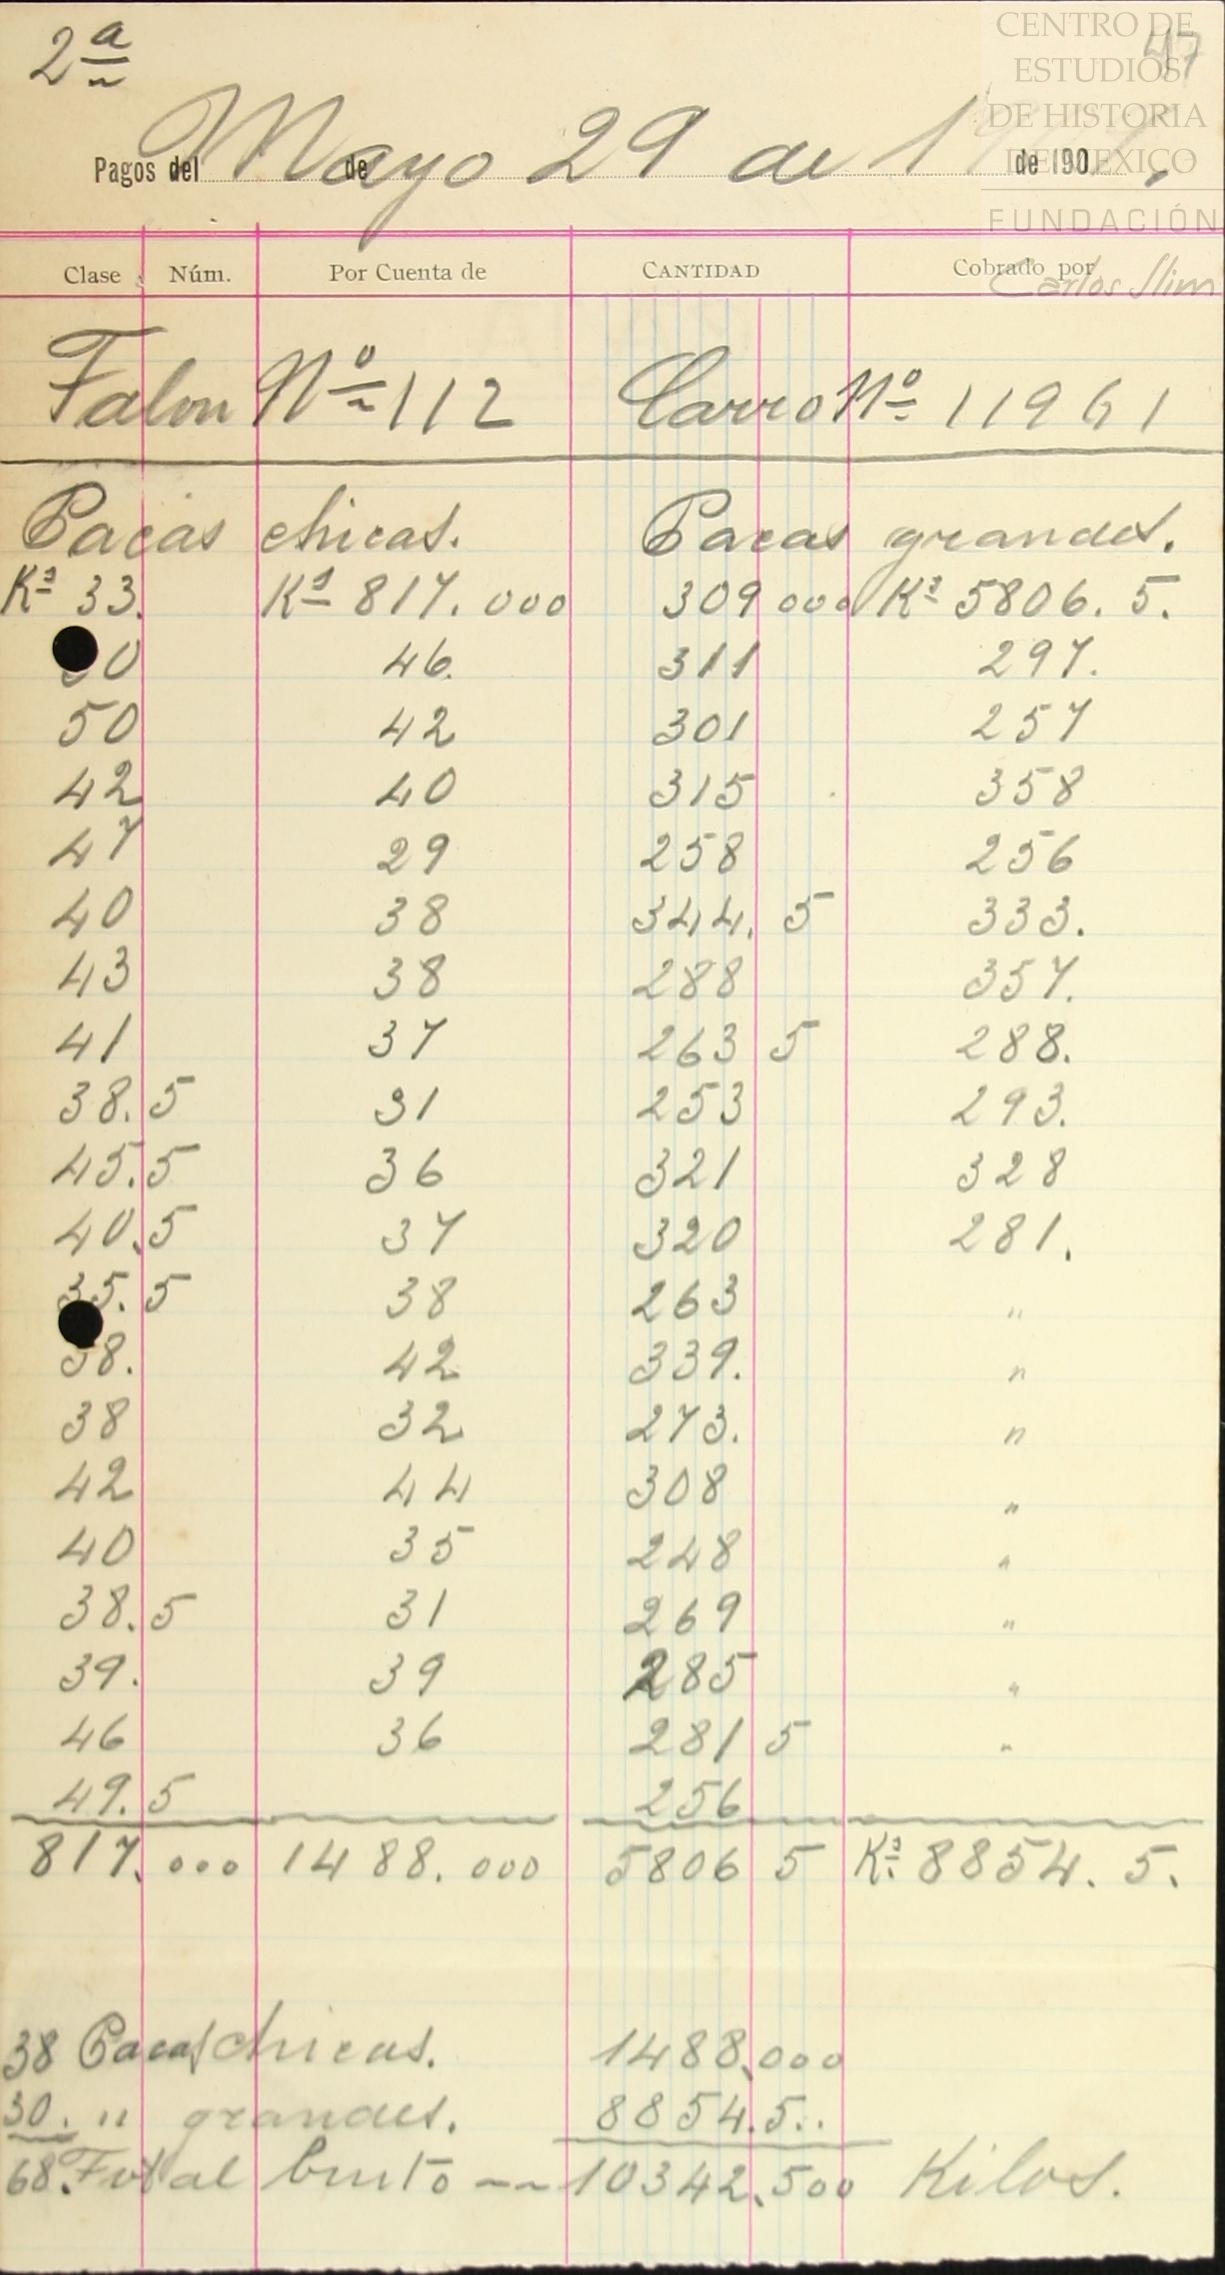 2ª
47
CENTRO DE
ESTUDIOS
DE HISTORIA
DE MEXICO
FUNDACIÓN
Carlos Slim
Pagos del de de 190
Mayo 29 de 1
Clase Núm. Por Cuenta de CANTIDAD Cobrado por
Talon Nº 112 Carro Nº 11961
Pacas chicas. Pacas grandes.
Kª 33. Kª 817.000 309 000 Kª 5806.5.
30 46. 311 297.
50 42 301 257
42 40 315 358
47 29 258 256
40 38 344.5 333.
43 38 288 357.
41 37 263 5 288.
38.5 31 253 293.
45.5 36 321 328
40.5 37 320 281.
35.5 38 263 "
38. 42 339. "
38 32 273. "
42 44 308 "
40 35 248 "
38.5 31 269 "
39. 39 285 "
46 36 281 5 "
49.5 256
817.000 1488.000 5806 5 Kª 8854.5.
38 Pacas chicas. 1488.000
30. " grandes. 8854.5..
68. Total bruto -- 10342.500 Kilos.